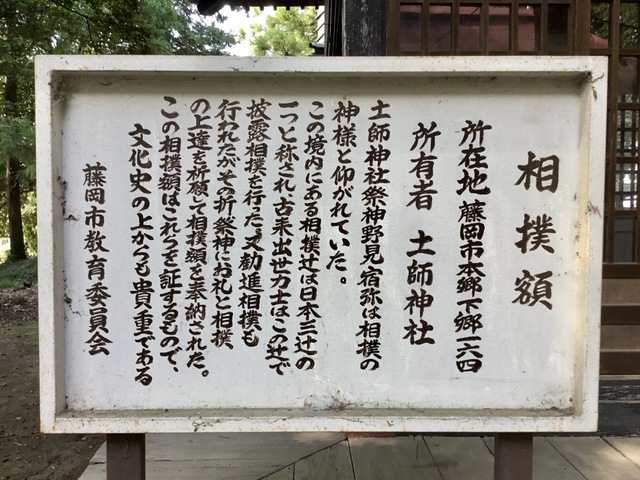 相撲額
所在地 藤岡市本郷下郷一六四
所有者 土師神社
土師神社祭神野見宿弥は相撲の
神様と仰がれていた。
この境内にある相撲辻は日本三辻の
一つと称され、古来出世力士はこの辻で
披露相撲を行った。又勧進相撲も
行われたがその折祭神にお礼と相撲、
の上達を祈願して相撲額を奉納された。
この相撲額はこれらを証するもので、
文化史の上からも貴重である
藤岡市教育委員会